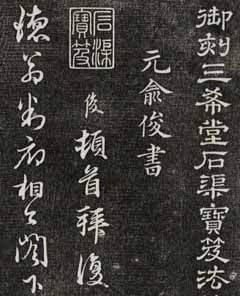 御刻三希堂石渠寶笈法
元俞俊書
石渠寶笈
俊頓首拜復
德翁府相公閣下